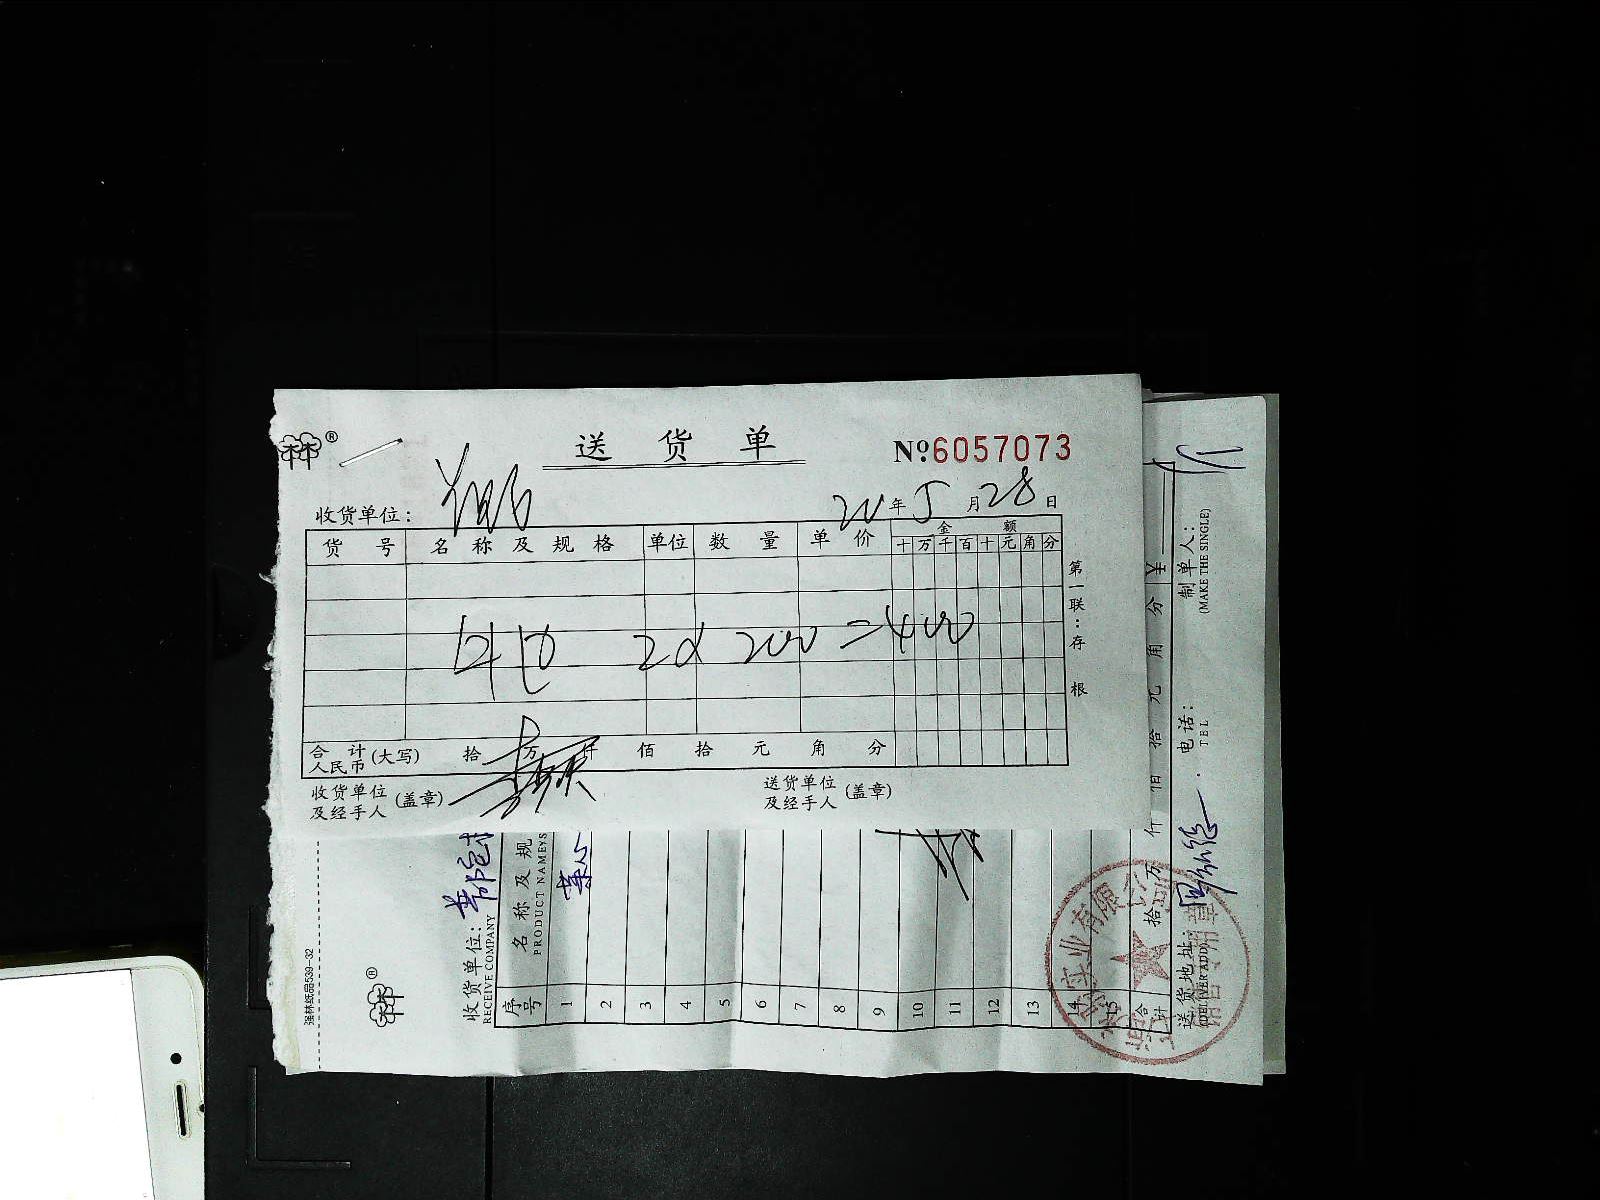 送货单
№6057073
收货单位:
20年5月28日
货号 名称及规格 单位 数量 单价 金额
十万千百十元角分
2 x 200 = 400
第一联:存根
合计人民币(大写) 拾 万 仟 佰 拾 元 角 分
收货单位及经手人(盖章)
送货单位及经手人(盖章)
强林纸品539-32
收货单位:
RECEIVE COMPANY
序号 名称及规
PRODUCT NAMEYS
1 菜心
2
3
4
5
6
7
8
9
10
11
12
13
14
15
合计 拾 万 仟 佰 拾 元 角 分 ¥
送货地址:
(DELIVER ADD)
电话:
TEL
制单人:
(MAKE THE SINGLE)
实业有限公司